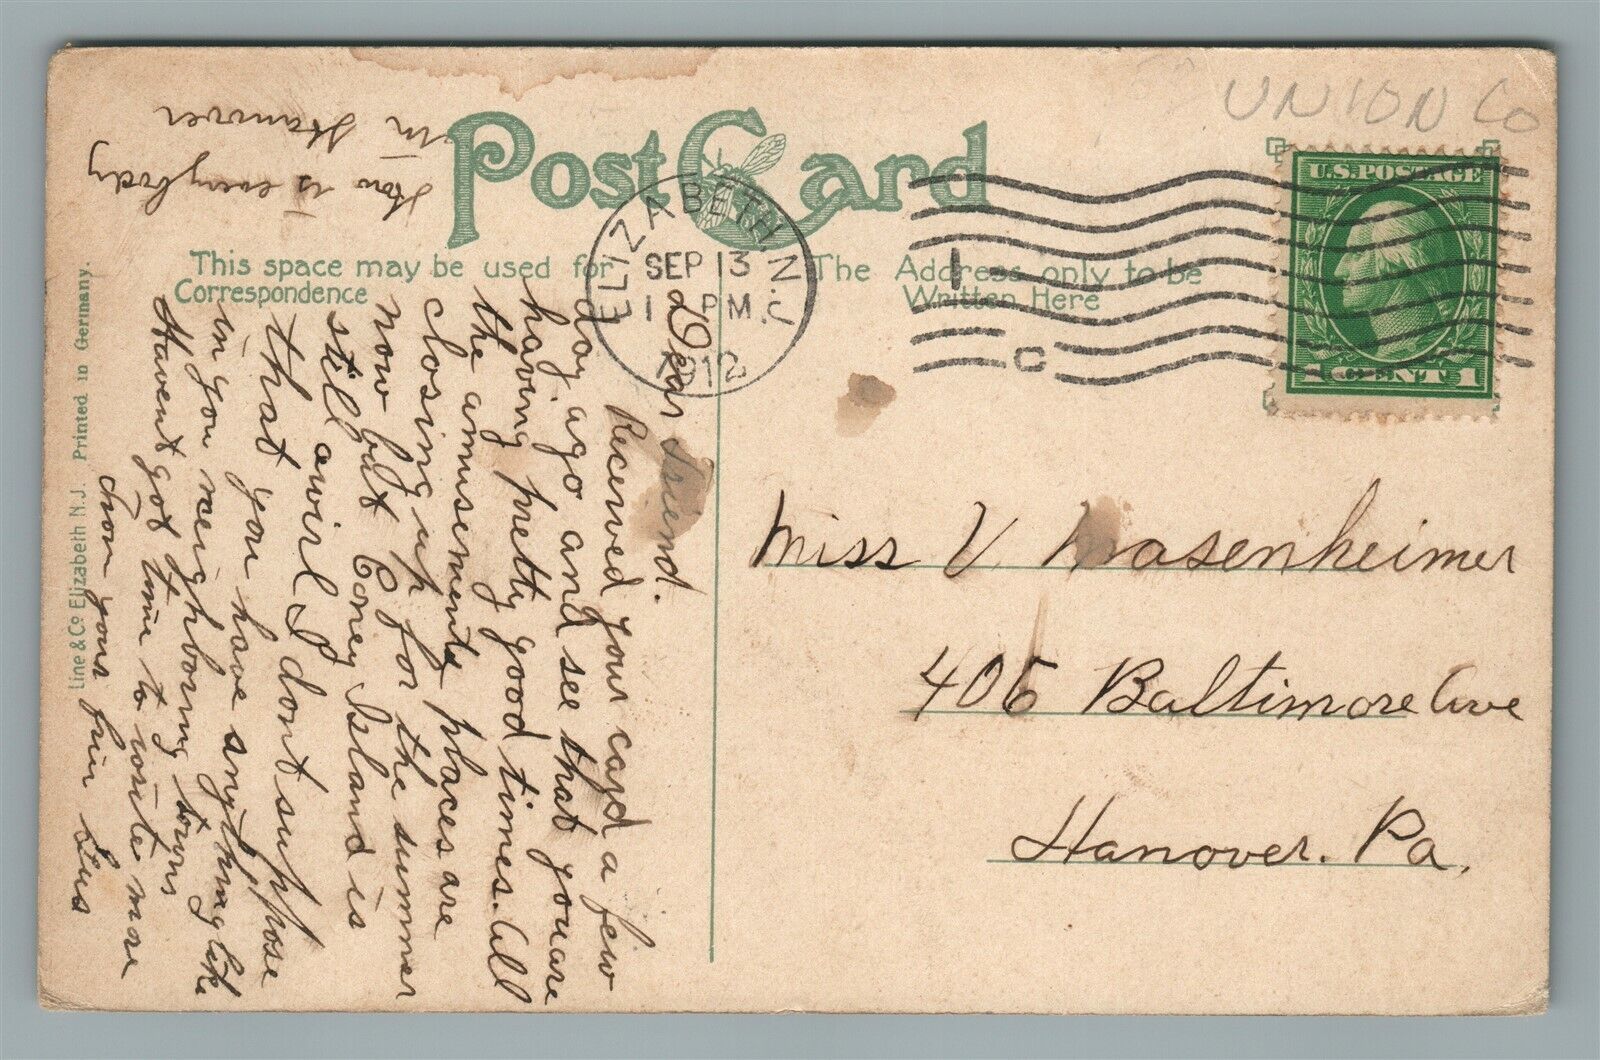 UNION Co
Post Card
U.S. POSTAGE
1 CENT 1
ELIZABETH N.J.
SEP 13
1 PM
1912
1
C
This space may be used for
Correspondence
The Address only to be
Written Here
Dear Friend.
Received your card a few
day ago and see that you are
having pretty good times. All
the amusements places are
closing up for the summer
now but Coney Island is
still awirl I dont suppose
that you have anything like
in you neighboring towns
Havent got time to write more
from your frin
How is everybody
in Hanover
Miss V Wasenheimer
406 Baltimore Ave
Hanover. Pa.
Line & Co Elizabeth N.J. Printed in Germany.